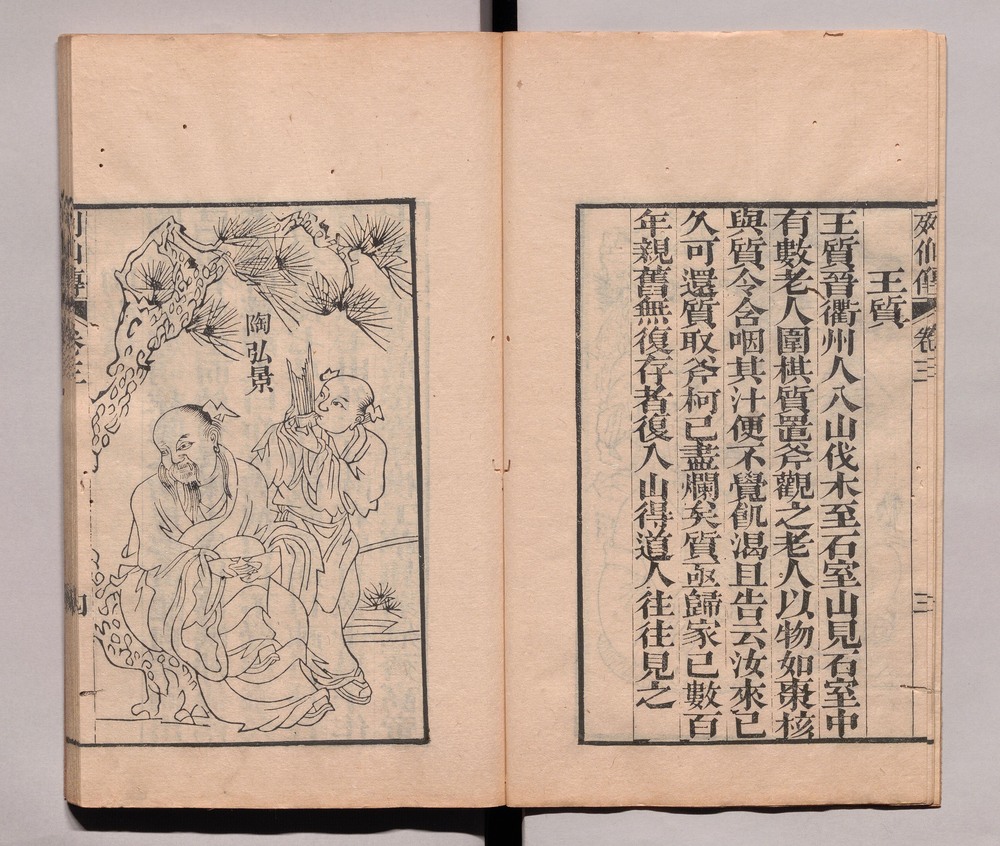 王質
王質晉衢州人入山伐木至石室山見石室中
有數老人圍棋質置斧觀之老人以物如棗核
與質令含咽其汁便不覺飢渴且告云汝來已
久可還質取斧柯已盡爛矣質亟歸家已數百
年親舊無復存者復入山得道人往往見之
列仙傳
卷三
三
陶弘景
列仙傳
卷三
四